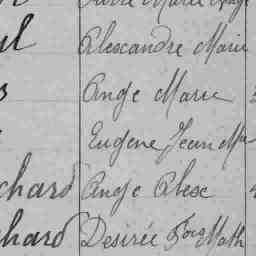 ul Alexandre Marie
s Ange Marie
Eugene Jean Mie
chard Ange Alexe
chard Desirée Fçois Math